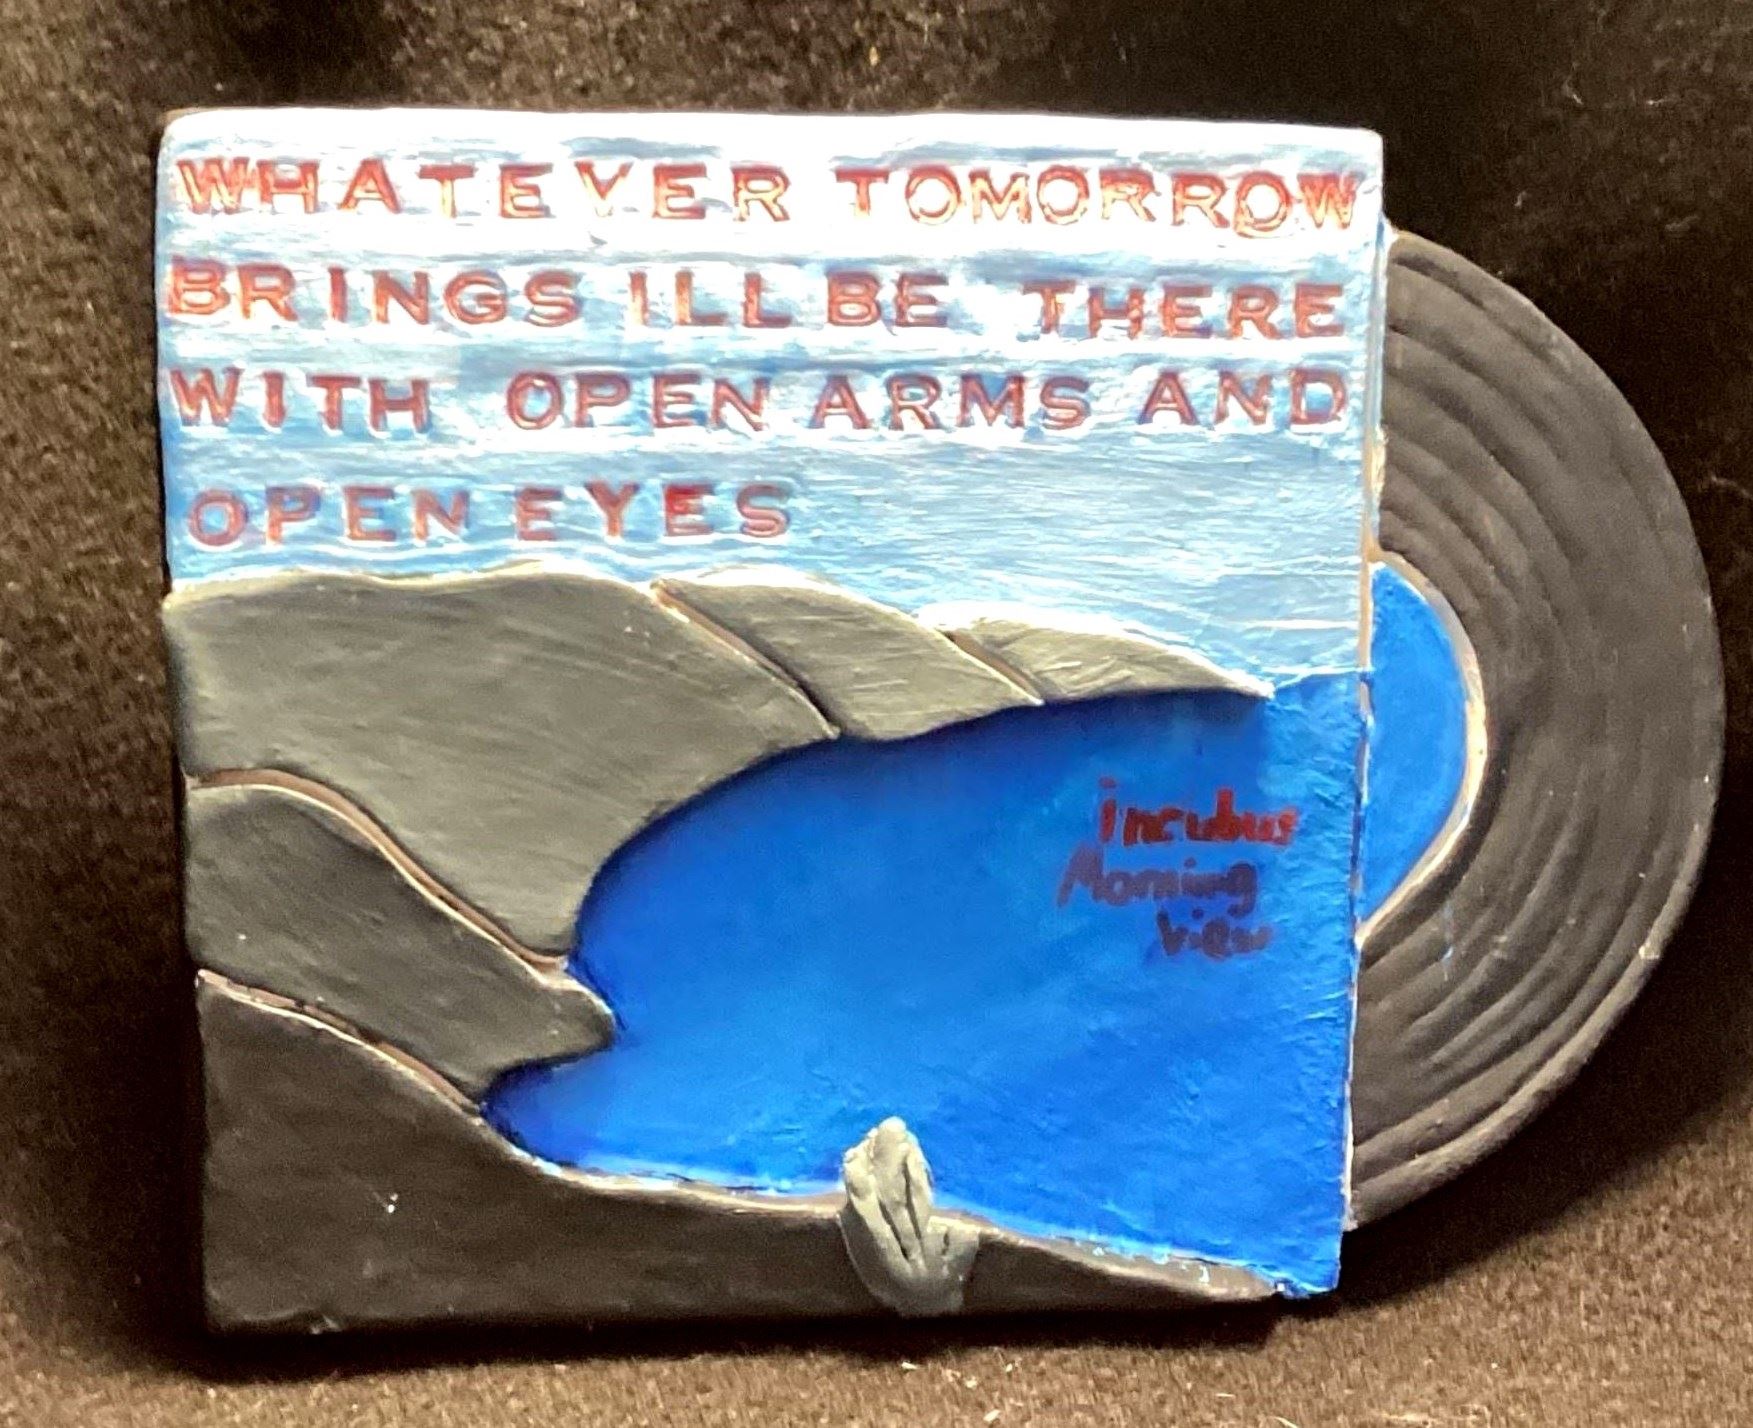 WHATEVER TOMORROW
BRINGS ILL BE THERE
WITH OPEN ARMS AND
OPEN EYES
incubus
Morning
View